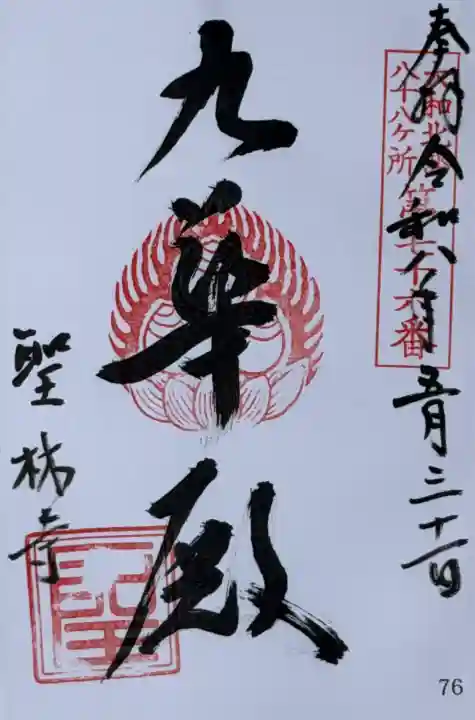 奉拝 令和八年 五月三十一日
大和北部
八十八ヶ所 第七十六番
九華殿
聖林寺
76